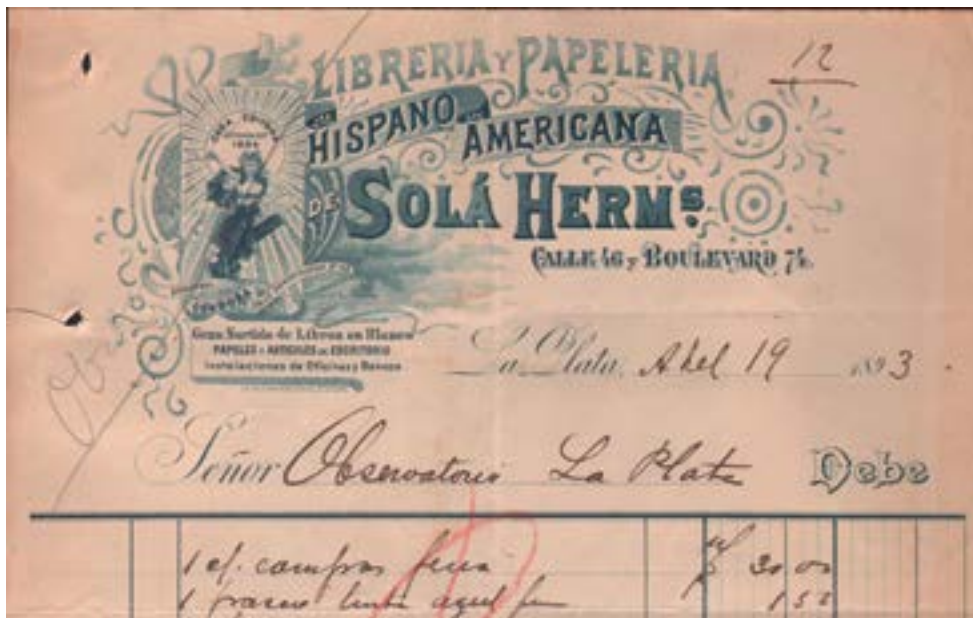 12
LIBRERIA Y PAPELERIA
HISPANO AMERICANA
DE
SOLÁ HERMS.
CALLE 46 y BOULEVARD 7
CASA
1884
Gran Surtido de Libros en Blanco
PAPELES Y ARTICULOS DE ESCRITORIO
Instalaciones de Oficinas y Bancos
La Plata, Abel 19 1893.
Señor Observatorio La Plata Debe
1 cf. compas fina 30,00
1 frasco tinta azul 1 50